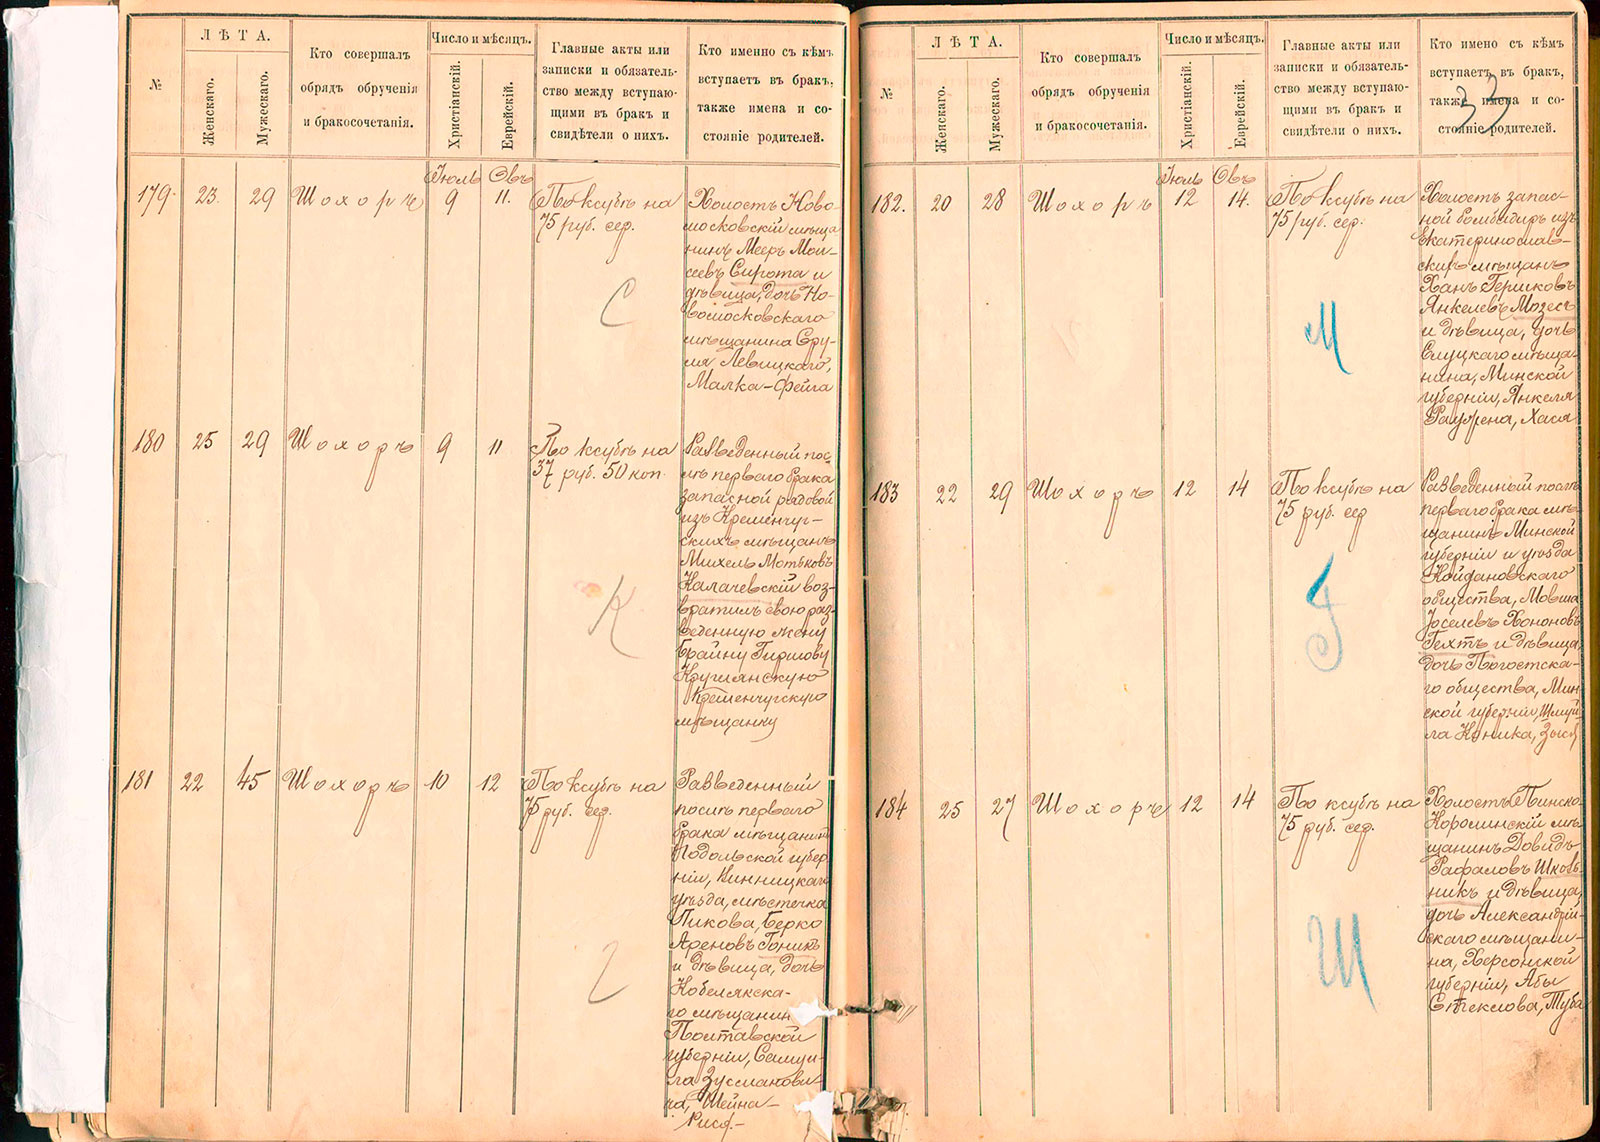 №
ЛѢТА.
Женскаго.
Мужескаго.
Кто совершалъ
обрядъ обрученія
и бракосочетанія.
Число и мѣсяцъ.
Христіанскій.
Еврейскій.
Главные акты или
записки и обязатель-
ство между вступаю-
щими въ бракъ и
свидѣтели о нихъ.
Кто именно съ кѣмъ
вступаетъ въ бракъ,
также имена и со-
стояніе родителей.
Іюль Овъ
179. 23. 29 Шохоръ 9 11.
По ксубѣ на
75 руб. сер.
С
Холостъ Ново-
московскій мѣща
нинъ Мееръ Мои-
сеевъ Сирота и
дѣвица, дочь Но-
вомосковскаго
мѣщанина Сру-
ля Левицкаго,
Малка-Фейга
180 25 29 Шохоръ 9 11
По ксубѣ на
37 руб. 50 коп.
К
Разведенный пос-
лѣ перваго брака
запасной рядовой
изъ Кременчуг-
скихъ мѣщанъ
Михель Мотьковъ
Калачевскій воз-
вратилъ свою раз-
веденную жену
Брайну Гиршову
Круглянскую
Кременчугскую
мѣщанку
181 22 45 Шохоръ 10 12
По ксубѣ на
75 руб. сер.
Г
Разведенный
послѣ перваго
брака мѣщанинъ
Подольской губер
ніи, Винницкаго
уѣзда, мѣстечка
Пикова, Берко
Ароновъ Гоникъ
и дѣвица, дочь
Кобелякска-
го мѣщанин
Полтавской
губерніи, Самуи-
ла Зусманови-
ча, Шейна-
Рися.-
№
ЛѢТА.
Женскаго.
Мужескаго.
Кто совершалъ
обрядъ обрученія
и бракосочетанія.
Число и мѣсяцъ.
Христіанскій.
Еврейскій.
Главные акты или
записки и обязатель-
ство между вступаю-
щими въ бракъ и
свидѣтели о нихъ.
Кто имено съ кѣмъ
вступаетъ въ бракъ,
также имена и со-
стояніе родителей.
33
Іюль Овъ
182. 20 28 Шохоръ 12 14.
По ксубѣ на
75 руб. сер.
М
Холостъ запас-
ной бомбадиръ изъ
Екатеринослав-
скихъ мѣщанъ
Ханъ Гершковъ
Янкелевъ Мозесъ
и дѣвица, дочь
Слуцкаго мѣща-
нина, Минской
губерніи, Янкеля
Хася
183 22 29 Шохоръ 12 14
По ксубѣ на
75 руб. сер
Г
Разведенный послѣ
перваго брака мѣ-
щанинъ Минской
губерніи и уѣзда
Койдановскаго
общества, Мовша
Іоселевъ Хононовъ
Гехтъ и дѣвица,
дочь Погостска-
го общества, Мин
ской губерніи, Шмуй-
ла Крника, Зысл
184 25 27 Шохоръ 12 14
По ксубѣ на
75 руб. сер.
Ш
Холостъ Пинско-
Каролинскій мѣ-
щанинъ Довидъ
Рафаловъ Школь-
никъ и дѣвица,
дочь Александрій-
скаго мѣщани-
на, Херсонской
губерніи, Абы
Стеклова, Туба